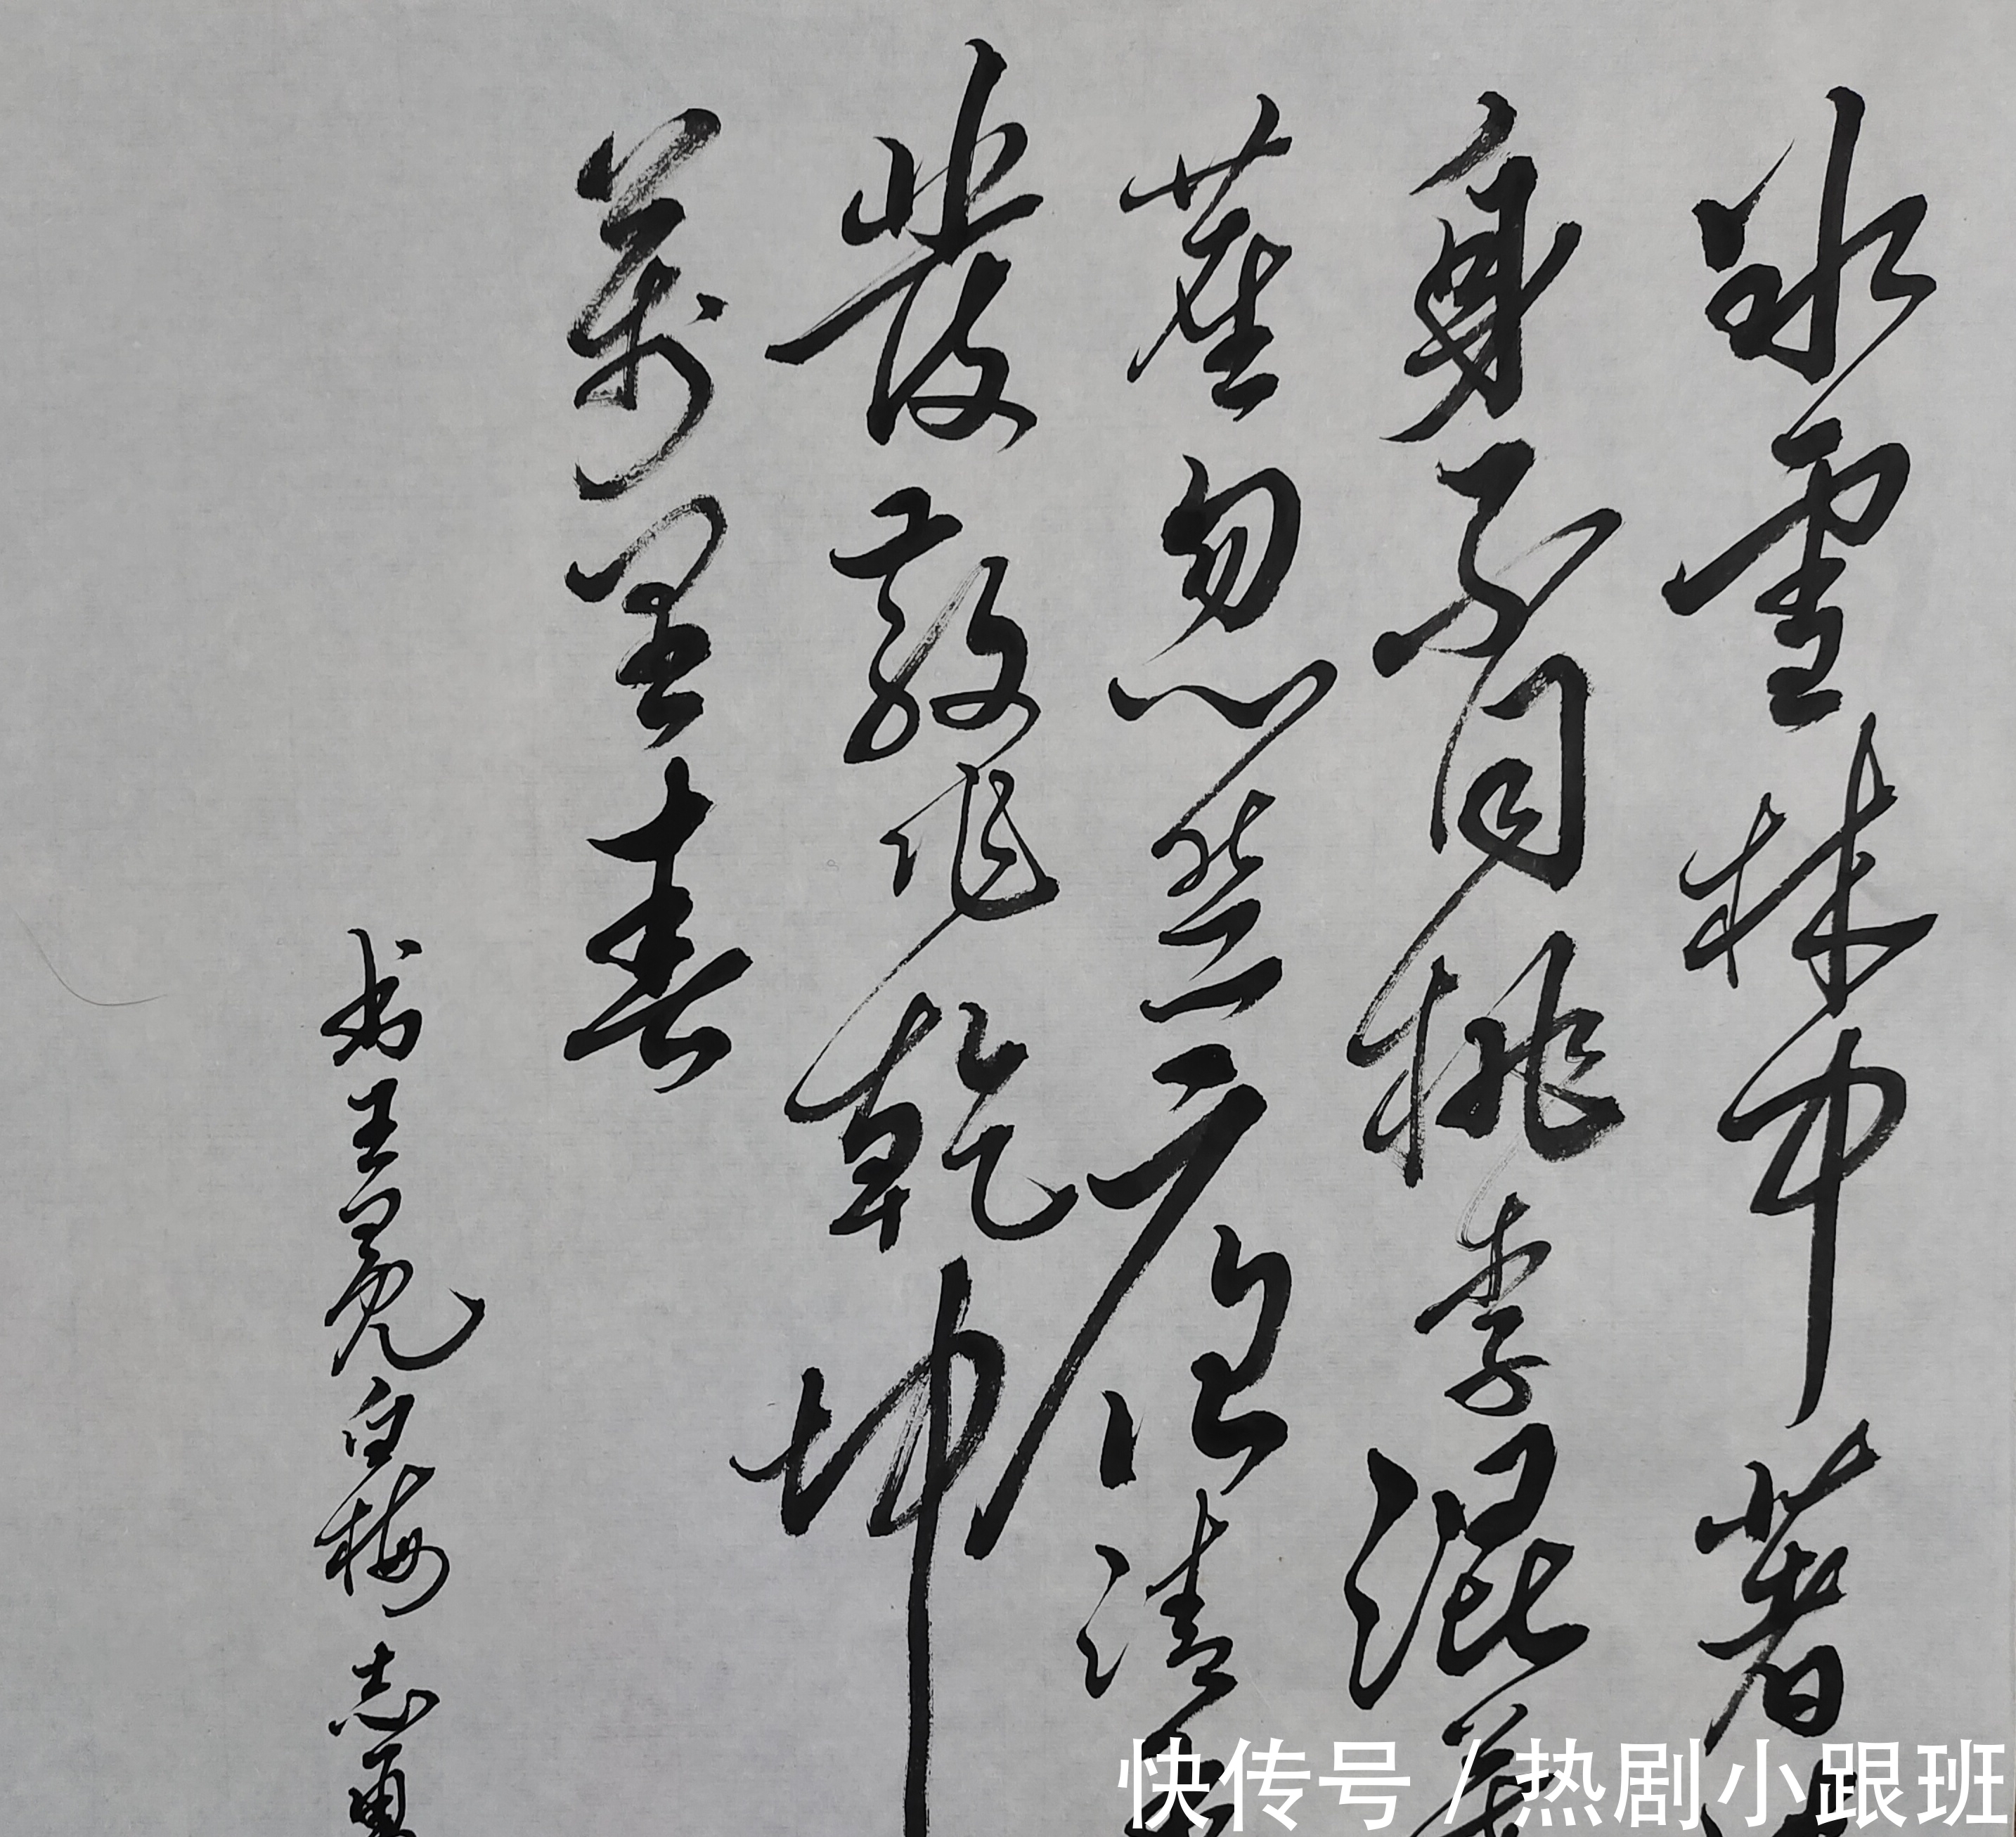 冰雪林中著
身不同桃李混芳
塵忽然一夜清香
發散作乾坤
萬里春
书王冕白梅 志勇
快传号 / 热剧小跟班